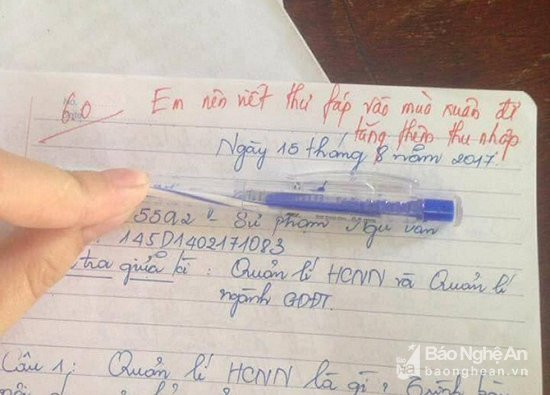 6.0
Em nên viết thư pháp vào mùa xuân để
tăng thêm thu nhập
Ngày 15 tháng 8 năm 2017.
55A2 - Sư phạm Ngữ văn
: 145D1402171083
tra giữa kì : Quản lí HCNN và Quản lí
ngành GDĐT.
Câu 1: Quản lí HCNN là gì ? Trình bày
Báo Nghệ An
baonghean.vn